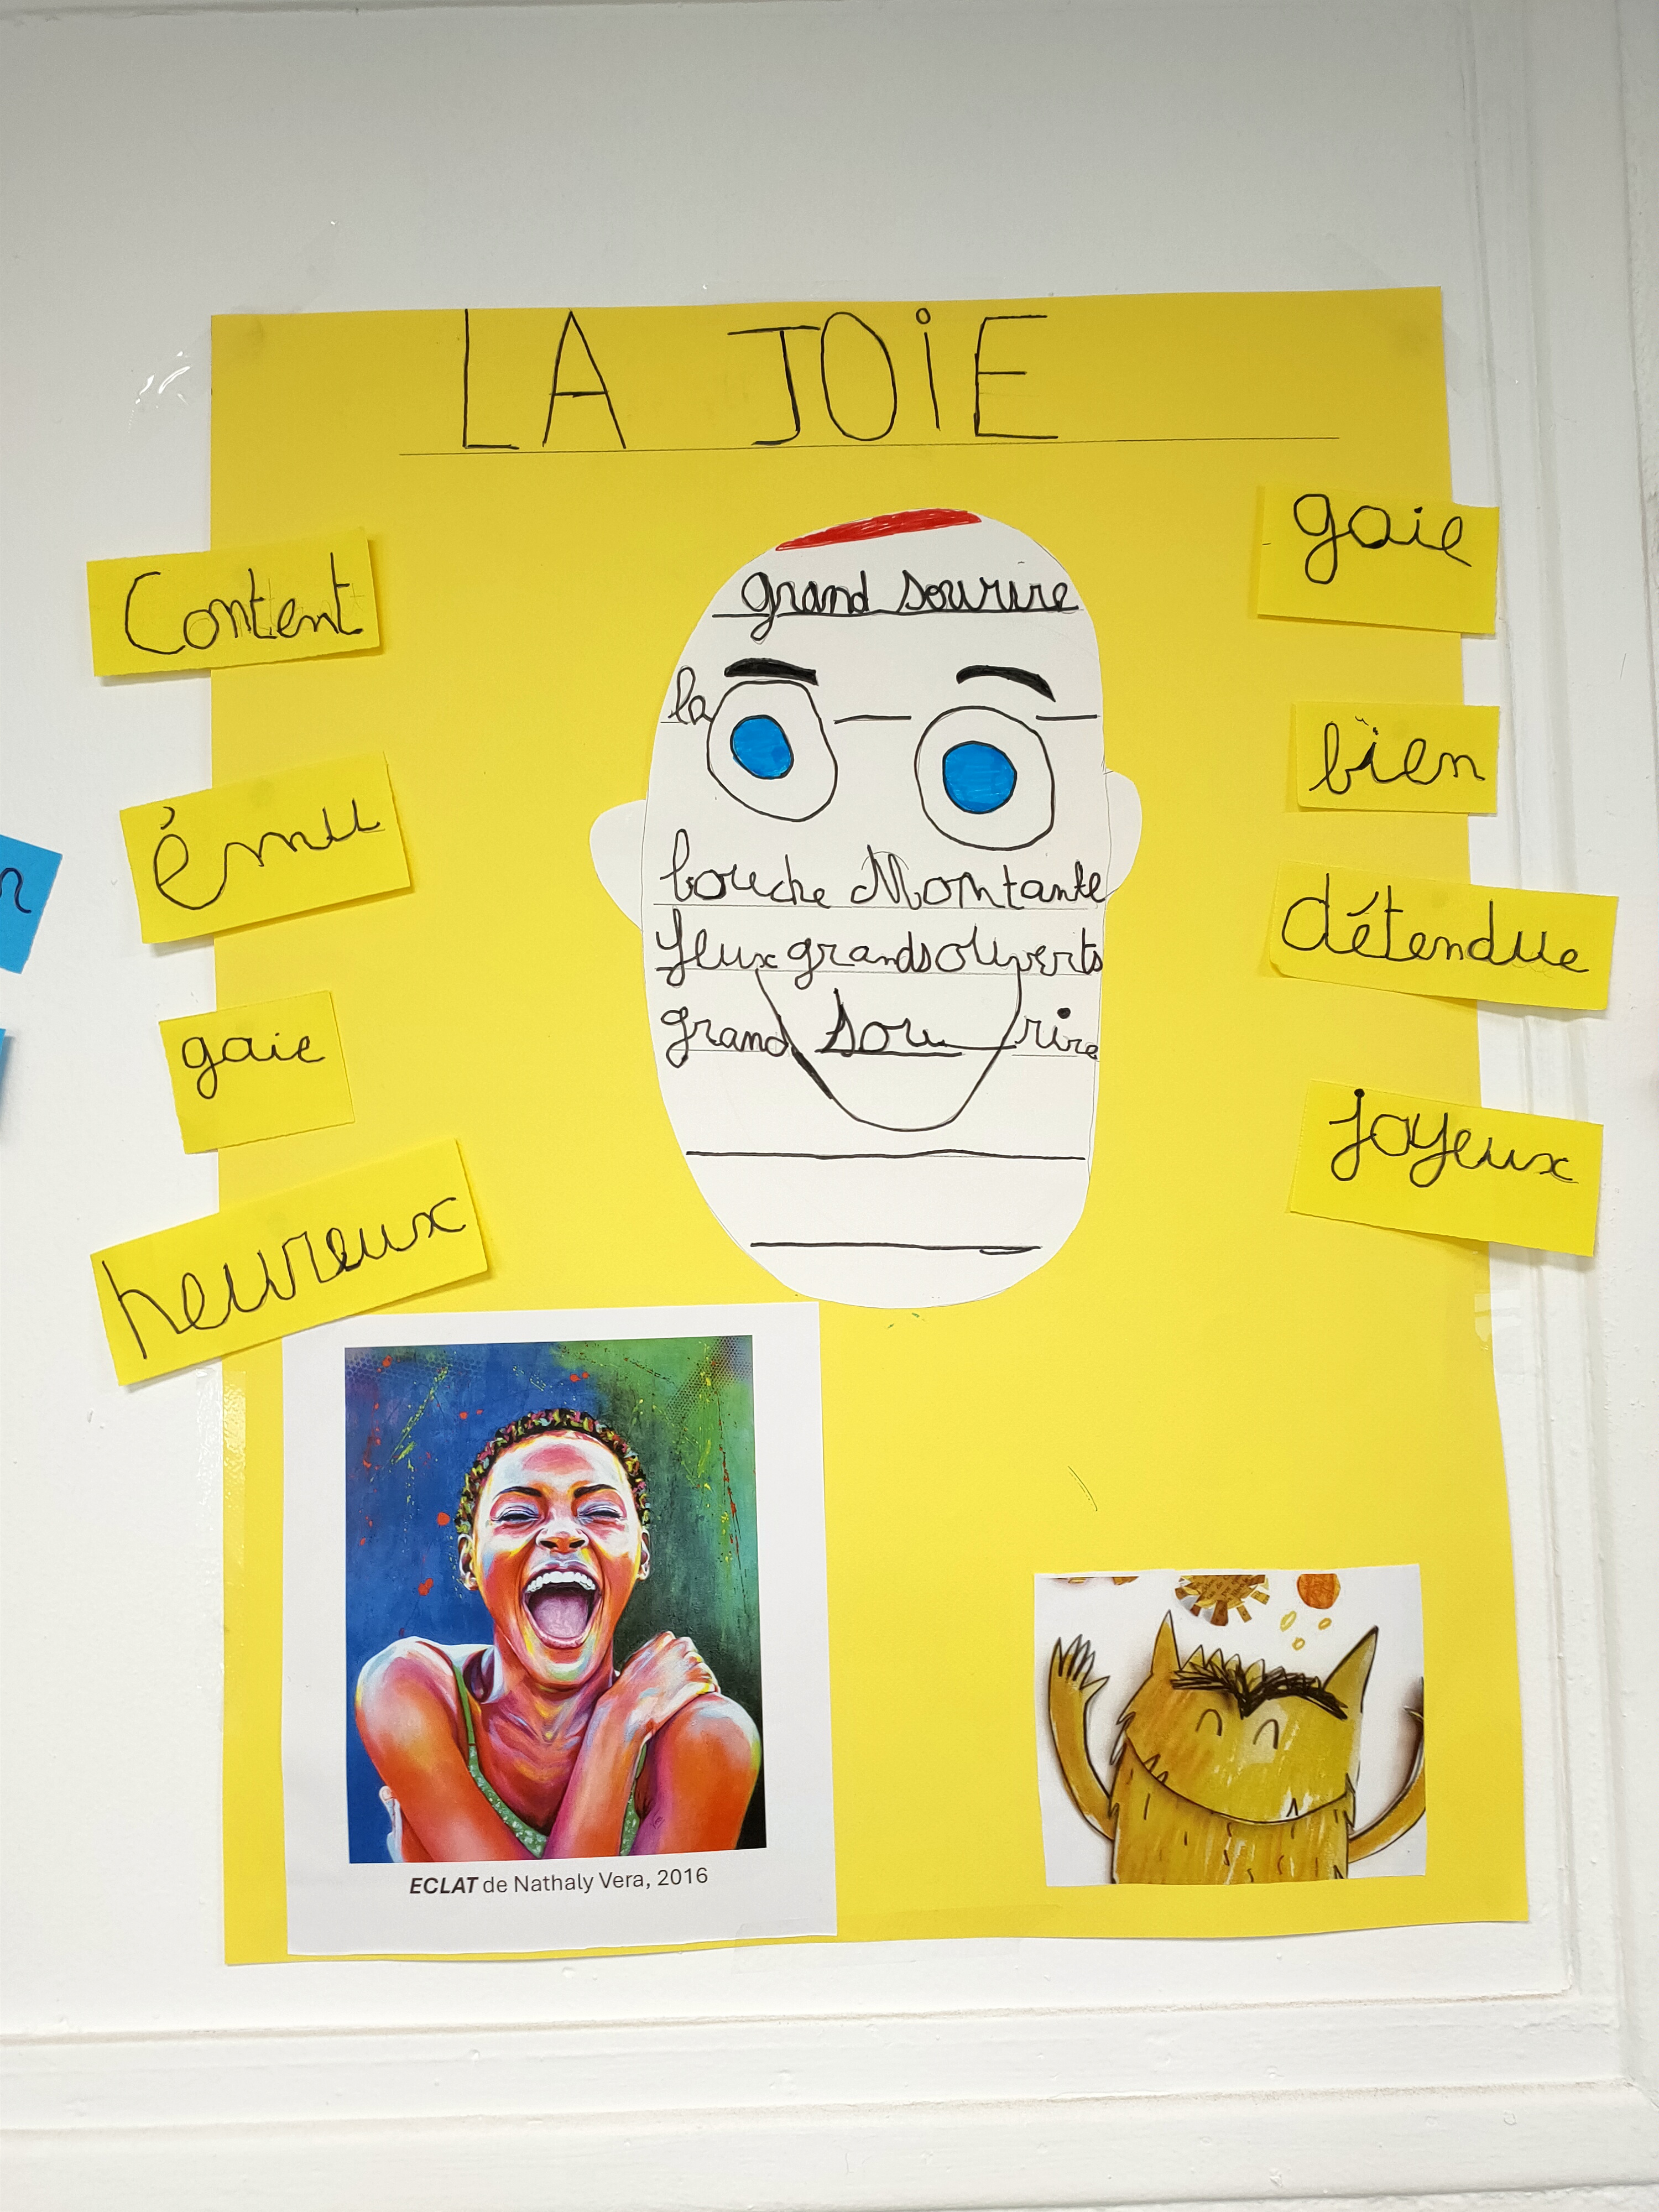 LA JOiE
Content
ému
gaie
heureux
grand sourire
la
bouche Montante
Yeux grands ouverts
grand sou rire
gaie
bien
détendue
joyeux
ECLAT de Nathaly Vera, 2016